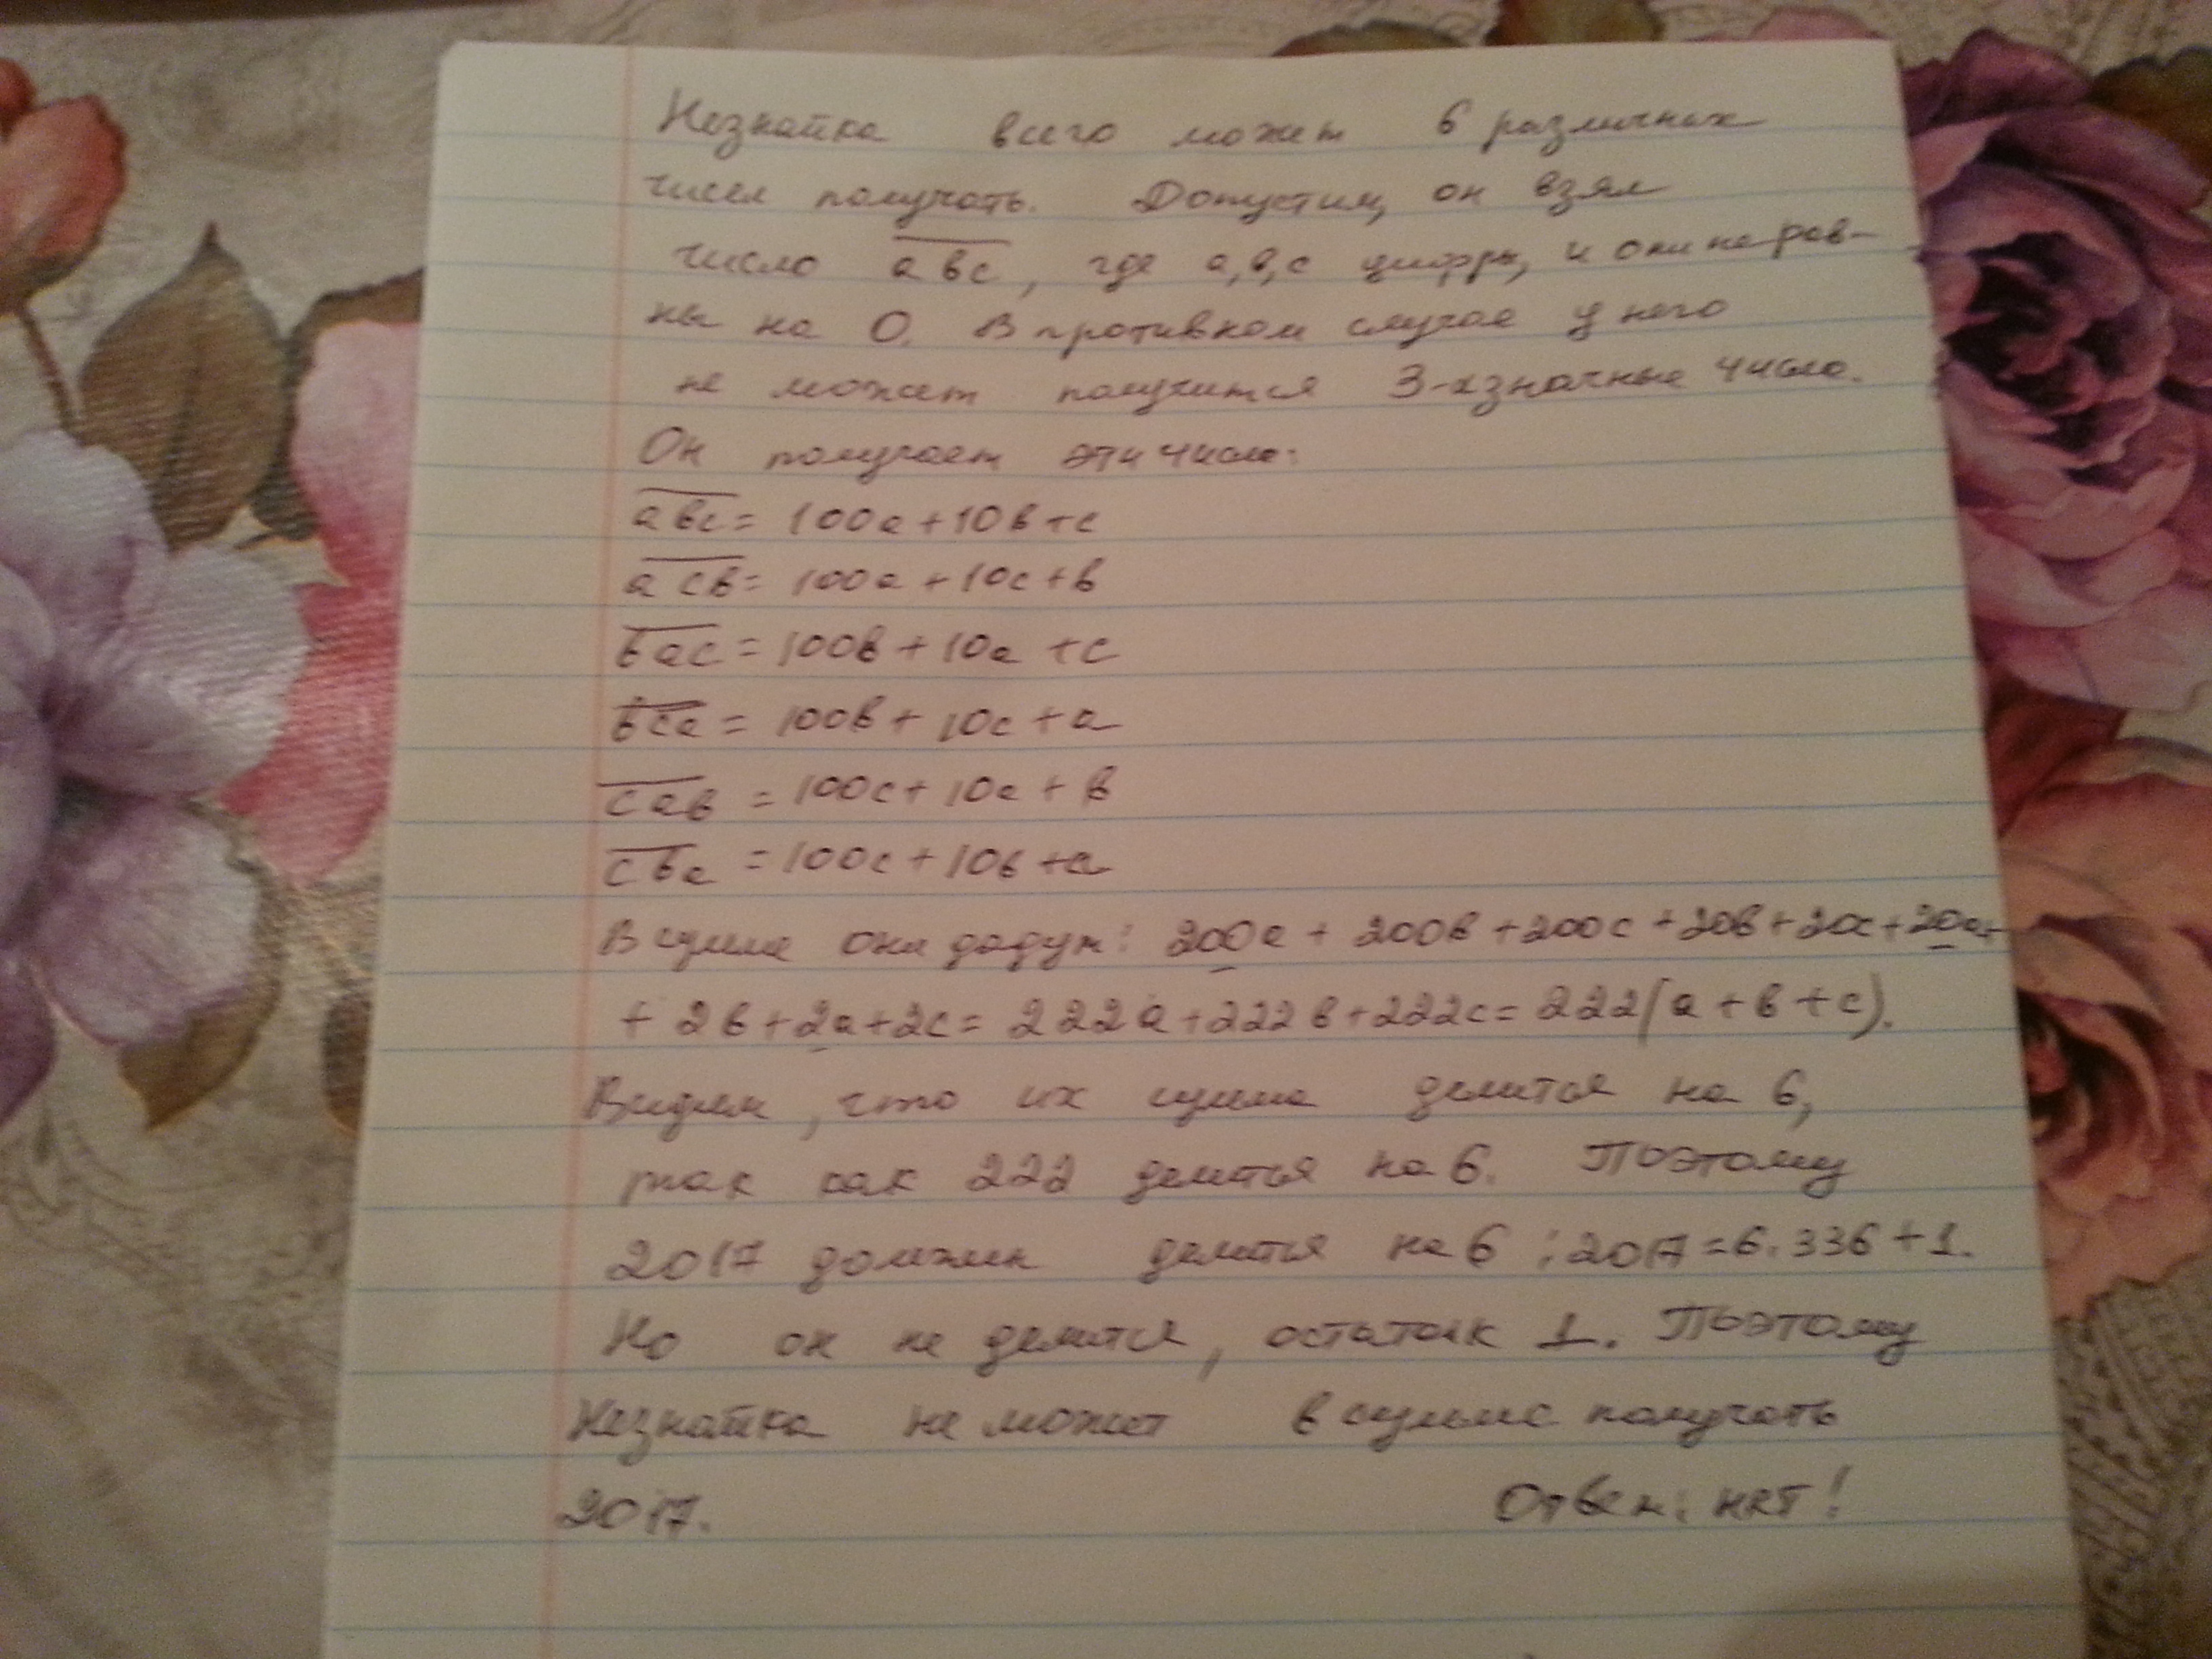 Незнайка всего может 6 различных
чисел получать. Допустим, он взял
число a̅b̅c̅, где a,b,c цифры, и они не рав-
ны на 0. В противном случае у него
не может получится 3-хзначные числа.
Он получает эти числа:
a̅b̅c̅ = 100a+10b+c
a̅c̅b̅ = 100a + 10c+b
b̅a̅c̅ = 100b + 10a +c
b̅c̅a̅ = 100b + 10c +a
c̅a̅b̅ = 100c+ 10a + b
c̅b̅a̅ = 100c+10b +a
В сумме они дадут: 200a + 200b +200c +20b+20c+20a+
+ 2b+2a+2c= 222a+222b+222c= 222(a+b+c).
Видим, что их сумма делится на 6,
так как 222 делится на 6. Поэтому
2017 должен делится на 6 : 2017=6·336+1.
Но он не делится, остаток 1. Поэтому
Незнайка не может в сумме получать
2017. Ответ: нет!